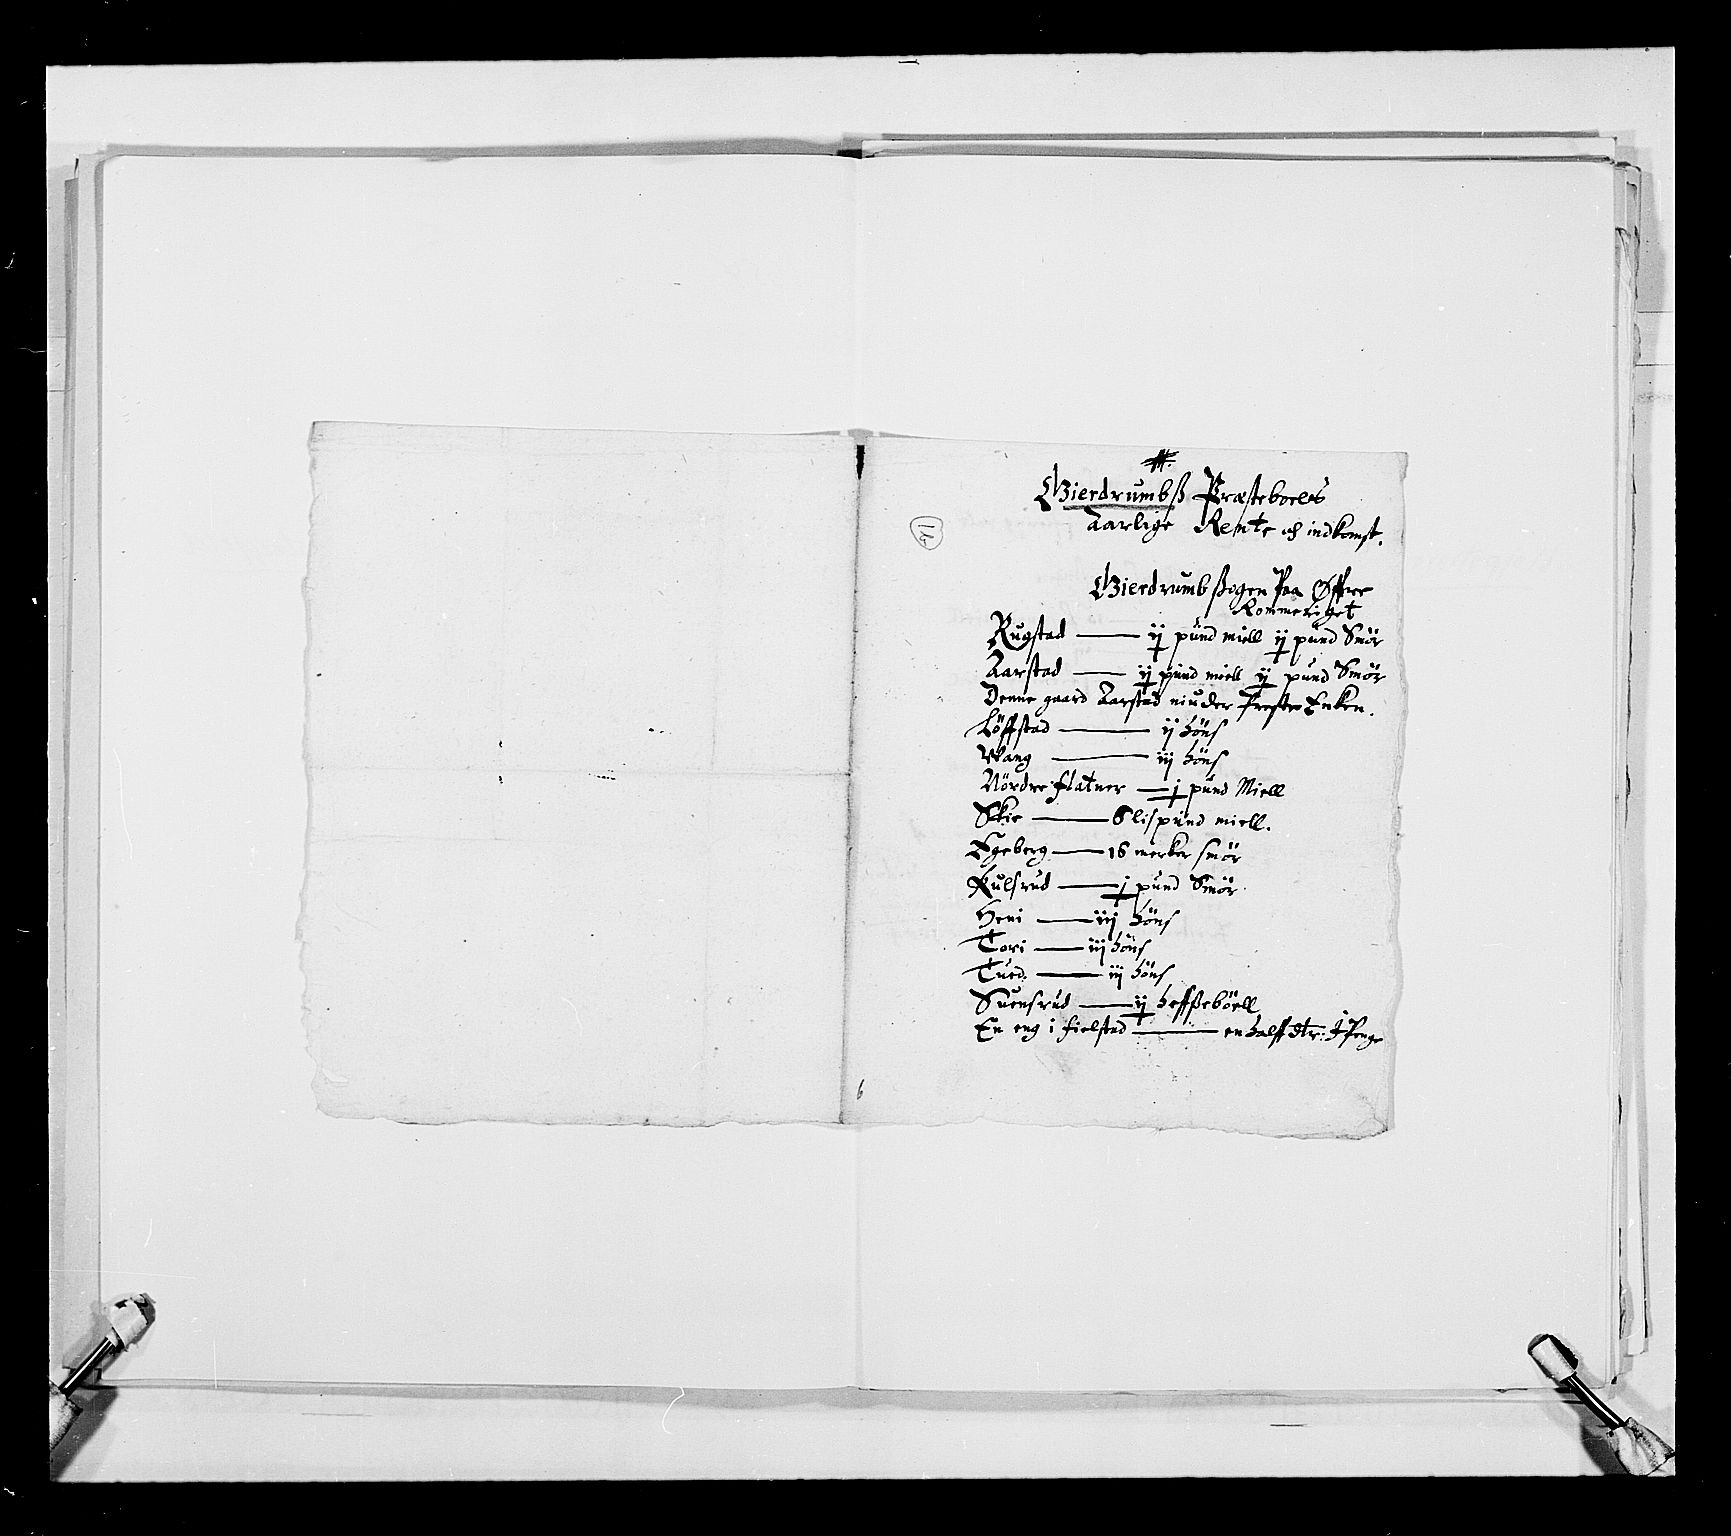 Gierdrumbß Præsteboels
Aarlige Rente och indkomst.
Gierdrumb ßogen Paa Øffre
Rommeriget
Rugstad — ij pund miell ij pund Smör
Aarstad — ij pund miell ij pund Smör
Denne gaard Aarstad niuder Preste Enken.
Löffstad — ij höns
Wang — iij höns
Nördre flatner — j pund Miell
Skie — 6 lispund miell.
Egeberg — 16 merker smör
Kulsrud — j pund Smör
Heni — iiij höns
Tori — iij höns
Tued. — iij höns
Suensrud — ij heffßeböell
En eng i fielstad — en halff dtr: I Penge
6